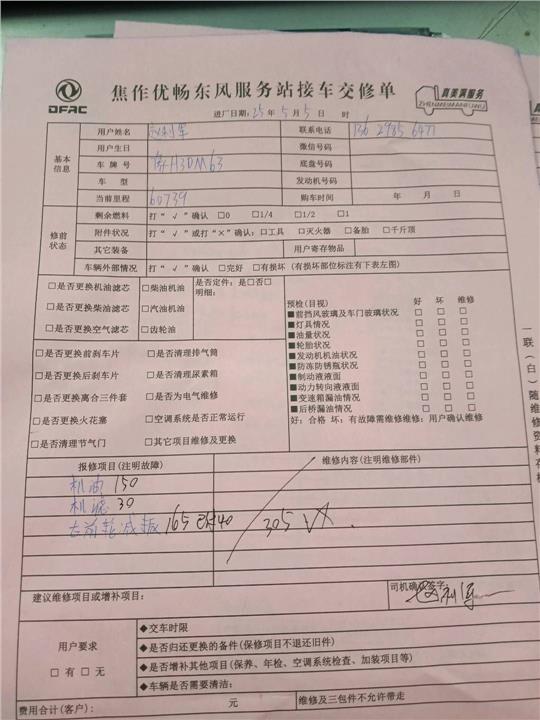 DFAC
焦作优畅东风服务站接车交修单
真美满服务
ZHENMEIMANFUWU
进厂日期：25年5月5日 时
基本信息
用户姓名 联系电话 136 2985 6471
用户生日 微信号码
车牌号 H3DM63 底盘号码
车型 发动机号码
当前里程 60739 购车时间 年 月 日
修前状态
剩余燃料 打“√”确认 □0 □1/4 □1/2 □1
附件状况 打“√”或打“×”确认：□工具 □灭火器 □备胎 □千斤顶
其它装备 用户寄存物品
车辆外部情况 打“√”确认 □完好 □有损坏（有损坏部位标注有下表左图）
□是否更换机油滤芯 □柴油机油
□是否更换柴油滤芯 □汽油机油
□是否更换空气滤芯 □齿轮油
是否定件：是□否□
明细：
□是否更换前刹车片 □是否清理排气筒
□是否更换后刹车片 □是否清理尿素箱
□是否更换离合三件套 □是否为电气维修
□是否更换火花塞 □空调系统是否正常运行
□是否清理节气门 □其它项目维修及更换
预检(目视) 好 坏 维修
■前挡风玻璃及车门玻璃状况 □ □ □
■灯具情况 □ □ □
■油量状况 □ □ □
■轮胎状况 □ □ □
■发动机机油状况 □ □ □
■防冻防锈瓶状况 □ □ □
■制动液液面 □ □ □
■动力转向液液面 □ □ □
■变速箱漏油情况 □ □ □
■后桥漏油情况 □ □ □
好：合格 坏：有故障需维修维修：用户确认维修
一联（白）随维修资料存档
报修项目(注明故障) 维修内容(注明维修部件)
机油 150
机滤 30
右前轮减振 165 40 305
建议维修项目或增补项目：
司机确认签字：
用户要求
□有 □无
◆交车时限
◆是否归还更换的备件(保修项目不退还旧件)
◆是否增补其他项目(保养、年检、空调系统检查、加装项目等)
◆车辆是否需要清洁：
费用合计(客户)： 元 维修及三包件不允许带走